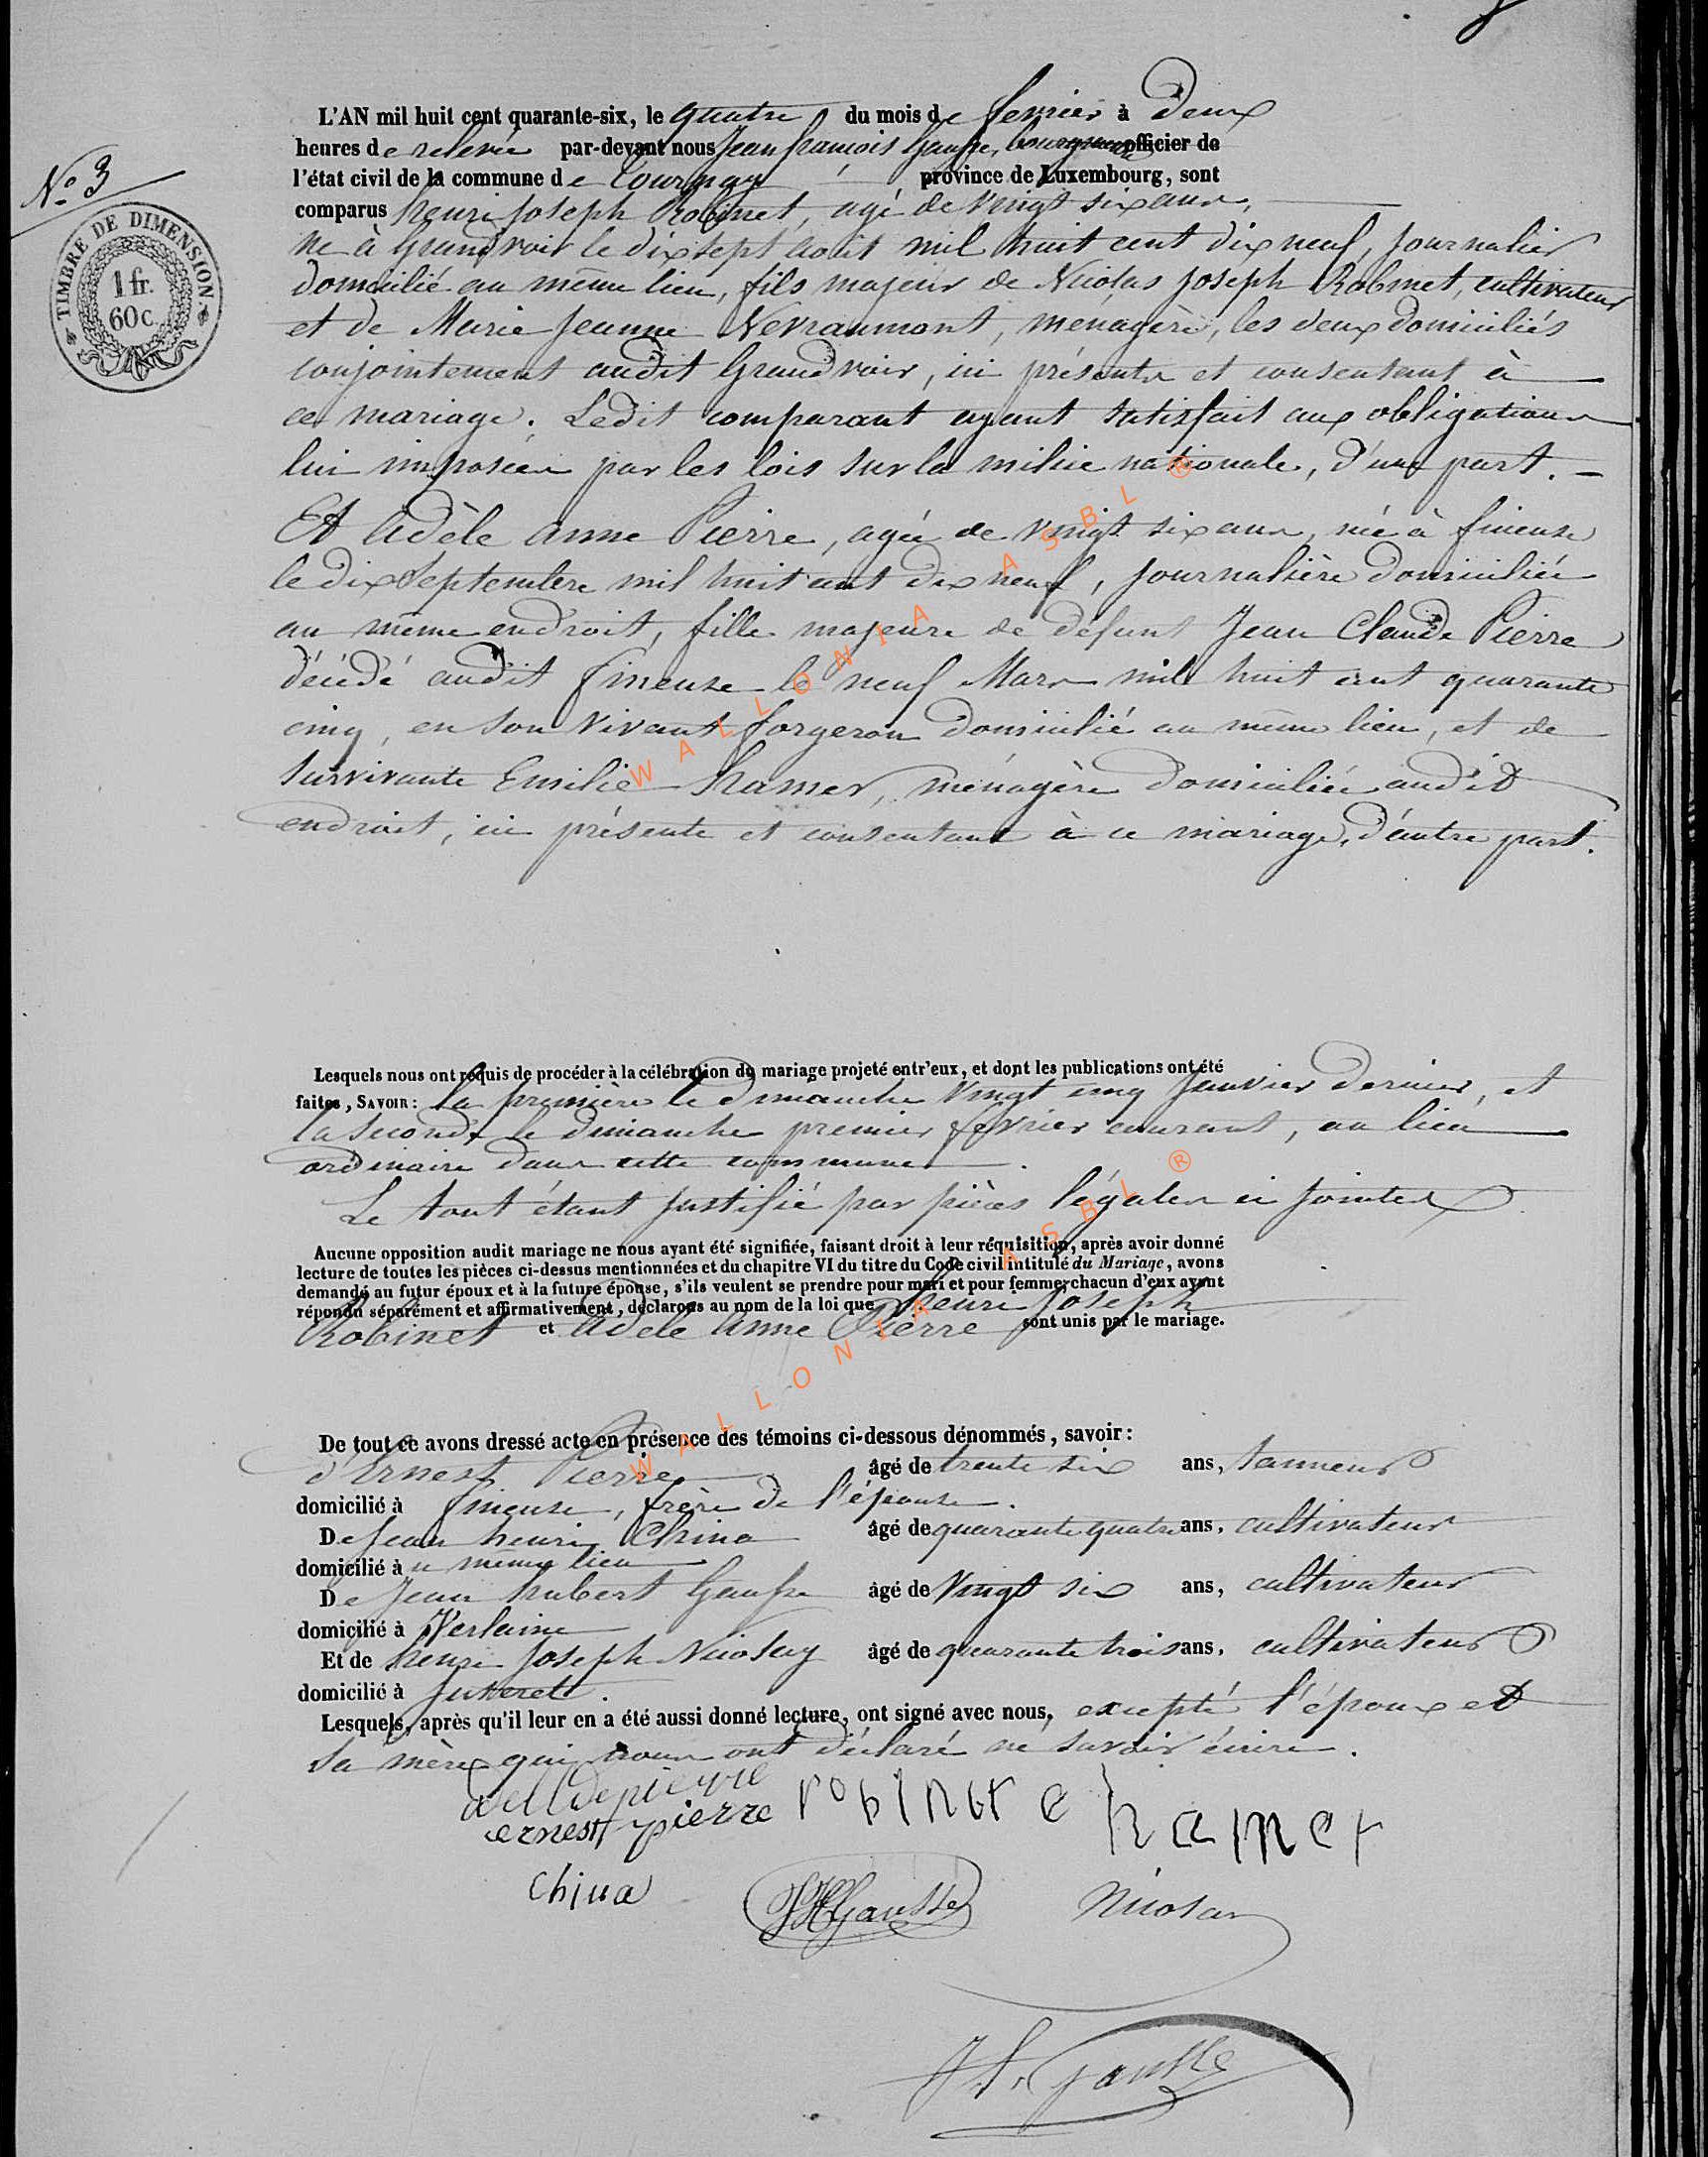 N° 3
TIMBRE DE DIMENSION.
1 fr.
60 c.
L'AN mil huit cent quarante-six, le quatre du mois de fevrier à deux
heures de relevée par-devant nous Jean francois Gausse, bourgmestre officier de
l'état civil de la commune de Tournay province de Luxembourg, sont
comparus henri Joseph Robinet, agé de vingt six ans,
né à Grandvoir le dix sept août mil huit cent dix neuf, journalier
domicilié au même lieu, fils majeur de Nicolas Joseph Robinet, cultivateur
et de Marie Jeanne Nevraumont, ménagère, les deux domiciliés
conjointement audit Grandvoir, ici présents et consentant à
ce mariage. Ledit comparant ayant satisfait aux obligations
lui imposées par les lois sur la milice nationale, d'une part. –
Et Adèle anne Pierre, agée de vingt six ans, née à fineuse
le dix Septembre mil huit cent dix neuf, journalière domiciliée
au même endroit, fille majeure de défunt Jean Claude Pierre
décédé audit fineuse le neuf Mars mil huit cent quarante
cinq, en son vivant forgeron domicilié au même lieu, et de
survivante Emilie hamer, ménagère domiciliée audit
endroit, ici présente et consentant à ce mariage, d'autre part.
Lesquels nous ont requis de procéder à la célébration du mariage projeté entr'eux, et dont les publications ont été
faites, SAVOIR: la première le dimanche vingt cinq Janvier dernier, et
la seconde le dimanche premier février courant, au lieu
ordinaire dans cette commune.
Le tout étant justifié par pièces légales ci jointes
Aucune opposition audit mariage ne nous ayant été signifiée, faisant droit à leur réquisition, après avoir donné
lecture de toutes les pièces ci-dessus mentionnées et du chapitre VI du titre du Code civil intitulé du Mariage, avons
demandé au futur époux et à la future épouse, s'ils veulent se prendre pour mari et pour femme: chacun d'eux ayant
répondu séparément et affirmativement, déclarons au nom de la loi que henri Joseph
Robinet et Adèle Anne Pierre sont unis par le mariage.
De tout ce avons dressé acte en présence des témoins ci-dessous dénommés, savoir:
d'Ernest Pierre âgé de trente six ans, tanneur
domicilié à fineuse, frère de l'épouse.
De Jean henri China âgé de quarante quatre ans, cultivateur
domicilié à u même lieu
De Jean hubert Gausse âgé de vingt six ans, cultivateur
domicilié à Verlaine
Et de henri Joseph Nicolay âgé de quarante trois ans, cultivateur
domicilié à Juseret.
Lesquels, après qu'il leur en a été aussi donné lecture, ont signé avec nous, excepté l'époux et
sa mère qui nous ont déclaré ne savoir écrire.
adelde pierre
robinet e hamer
ernest pierre
China
JHGausse
Nicolay
J. f. Gausse
WALLONIA ASBL ®
WALLONIA ASBL ®